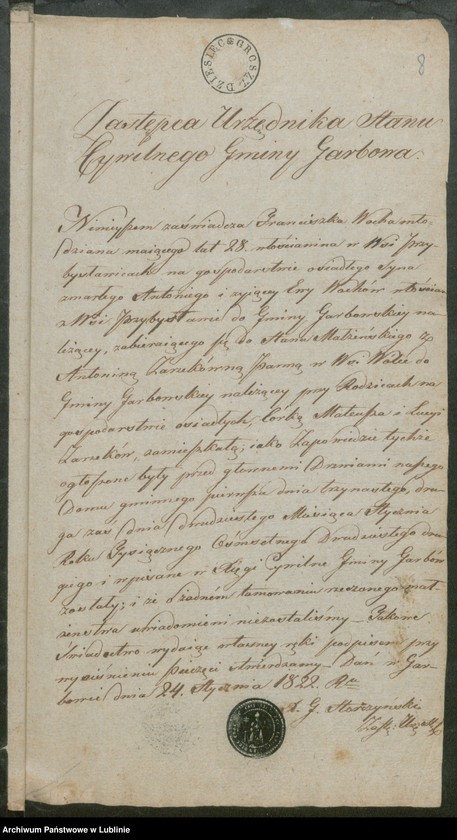 DZIESIĘC GROSZY
8
Zastępca Urzędnika Stanu
Cywilnego Gminy Garbowa.
Ninieyszem zaświadcza Franciszka Wocha mło-
dziana maiącego lat 28. włościanina w Wsi Przy-
bysławicach na gospodarstwie osiadłego Syna
zmarłego Antoniego i żyjącey Ewy Wochów włościan
z Wsi Przybysławic do Gminy Garbowskiey na-
leżącey, zabieraiącego się do Stanu Małżeńskiego z
Antoniną Zarzkówną Panną w Wsi Wolce do
Gminy Garbowskiey należącey przy Rodzicach na
gospodarstwie osiadłych, Córką Mateusza i Łucyi
Zarzków, zamieszkałą; iako Zapowiedzie tychże
ogłoszone były przed głównemi Drzwiami naszego
Domu gminnego pierwsza dnia trzynastego, dru-
ga zaś dnia dwudziestego Miesiąca Stycznia
Roku Tysiącznego Ośmsetnego Dwudziestego dru-
giego i wpisane w Xięgi Cywilne Gminy Garbów
zostały; i że o żadnem tamowaniu rzeczonego mał-
żeństwa uwiadomieni niezostaliśmy _ Takowe
Świadectwo wydaiąc własney ręki podpisem przy
wyciśnieniu Pieczęci stwierdzamy _ Dan w Gar-
bowie dnia 24. Stycznia 1822. Rku
A. G. Starczyński
Zastę. Urzę.
Archiwum Państwowe w Lublinie